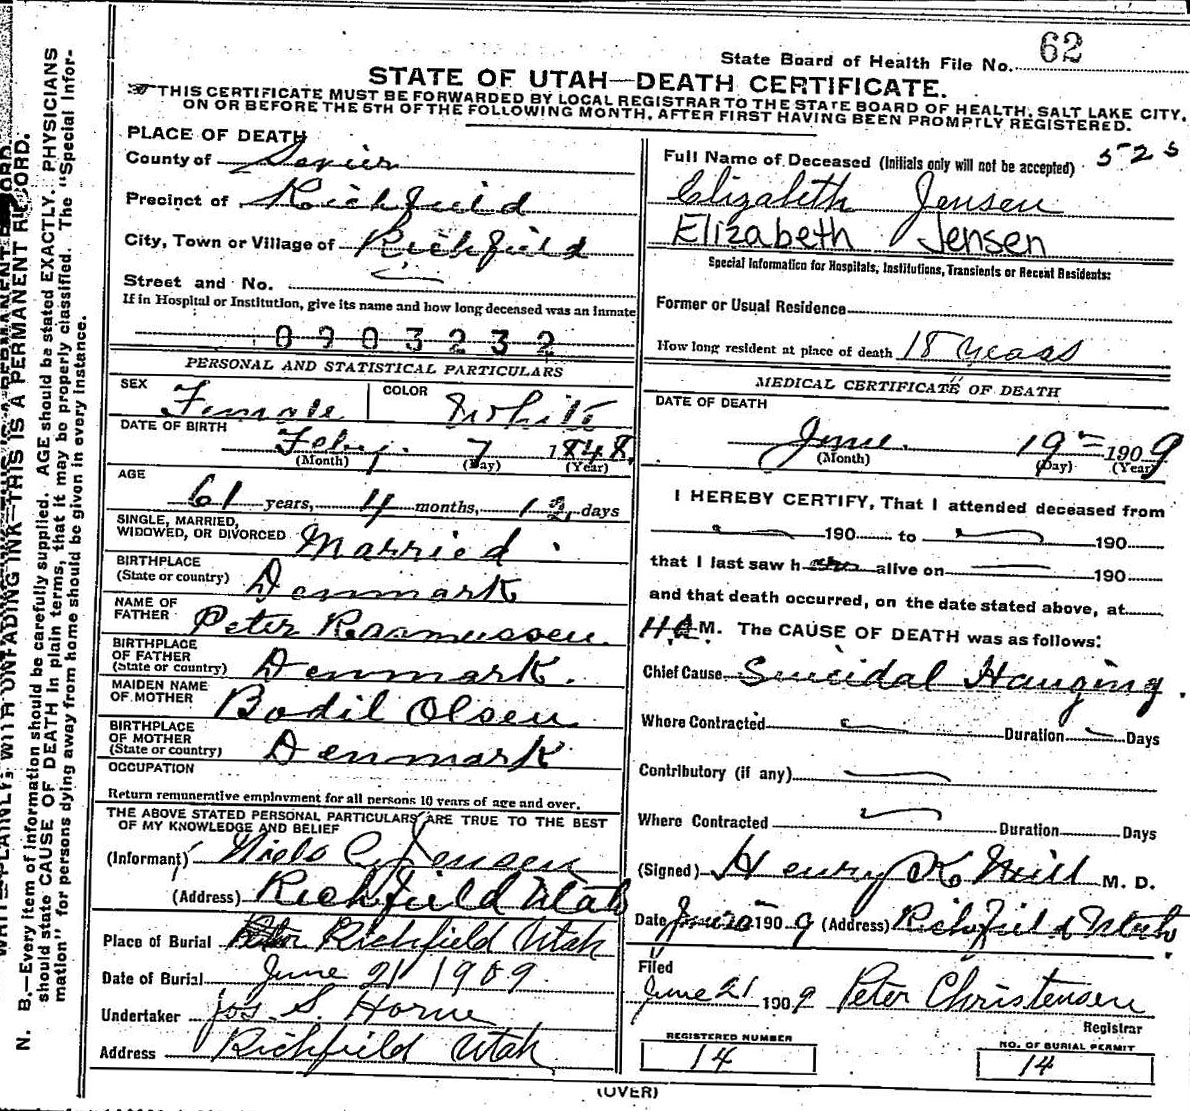 State Board of Health File No. 62
STATE OF UTAH—DEATH CERTIFICATE.
THIS CERTIFICATE MUST BE FORWARDED BY LOCAL REGISTRAR TO THE STATE BOARD OF HEALTH, SALT LAKE CITY,
ON OR BEFORE THE 5TH OF THE FOLLOWING MONTH, AFTER FIRST HAVING BEEN PROMPTLY REGISTERED.
PLACE OF DEATH
County of Sevier
Precinct of Richfield
City, Town or Village of Richfield
Street and No.
If in Hospital or Institution, give its name and how long deceased was an Inmate
0903232
PERSONAL AND STATISTICAL PARTICULARS
SEX Female COLOR White
DATE OF BIRTH Feby. 7 1848
(Month) (Day) (Year)
AGE
61 years, 4 months, 12 days
SINGLE, MARRIED,
WIDOWED, OR DIVORCED Married
BIRTHPLACE
(State or country) Denmark
NAME OF
FATHER Peter Rasmussen
BIRTHPLACE
OF FATHER
(State or country) Denmark.
MAIDEN NAME
OF MOTHER Bodil Olsen
BIRTHPLACE
OF MOTHER
(State or country) Denmark
OCCUPATION
Return remunerative employment for all persons 10 years of age and over.
THE ABOVE STATED PERSONAL PARTICULARS ARE TRUE TO THE BEST
OF MY KNOWLEDGE AND BELIEF
(Informant) Niels C. Jensen
(Address) Richfield Utah
Place of Burial Richfield Utah
Date of Burial June 21 1909
Undertaker Jos. S. Horne
Address Richfield Utah
Full Name of Deceased (Initials only will not be accepted) 525
Elizabeth Jensen
Elizabeth Jensen
Special Information for Hospitals, Institutions, Transients or Recent Residents:
Former or Usual Residence
How long resident at place of death 18 years
MEDICAL CERTIFICATE OF DEATH
DATE OF DEATH
June 19 1909
(Month) (Day) (Year)
I HEREBY CERTIFY, That I attended deceased from
190 to 190
that I last saw h alive on 190
and that death occurred, on the date stated above, at
M. The CAUSE OF DEATH was as follows:
Chief Cause Suicidal Hanging.
Where Contracted Duration Days
Contributory (if any)
Where Contracted Duration Days
(Signed) Henry K Neill M. D.
Date June 20 1909 (Address) Richfield Utah
Filed
June 21 1909 Peter Christensen
Registrar
REGISTERED NUMBER
14
NO. OF BURIAL PERMIT
14
(OVER)
N. B.—Every item of information should be carefully supplied. AGE should be stated EXACTLY. PHYSICIANS
should state CAUSE OF DEATH in plain terms, that it may be properly classified. The "Special Infor-
mation" for persons dying away from home should be given in every instance.
WRITE PLAINLY, WITH UNFADING INK—THIS IS A PERMANENT RECORD.